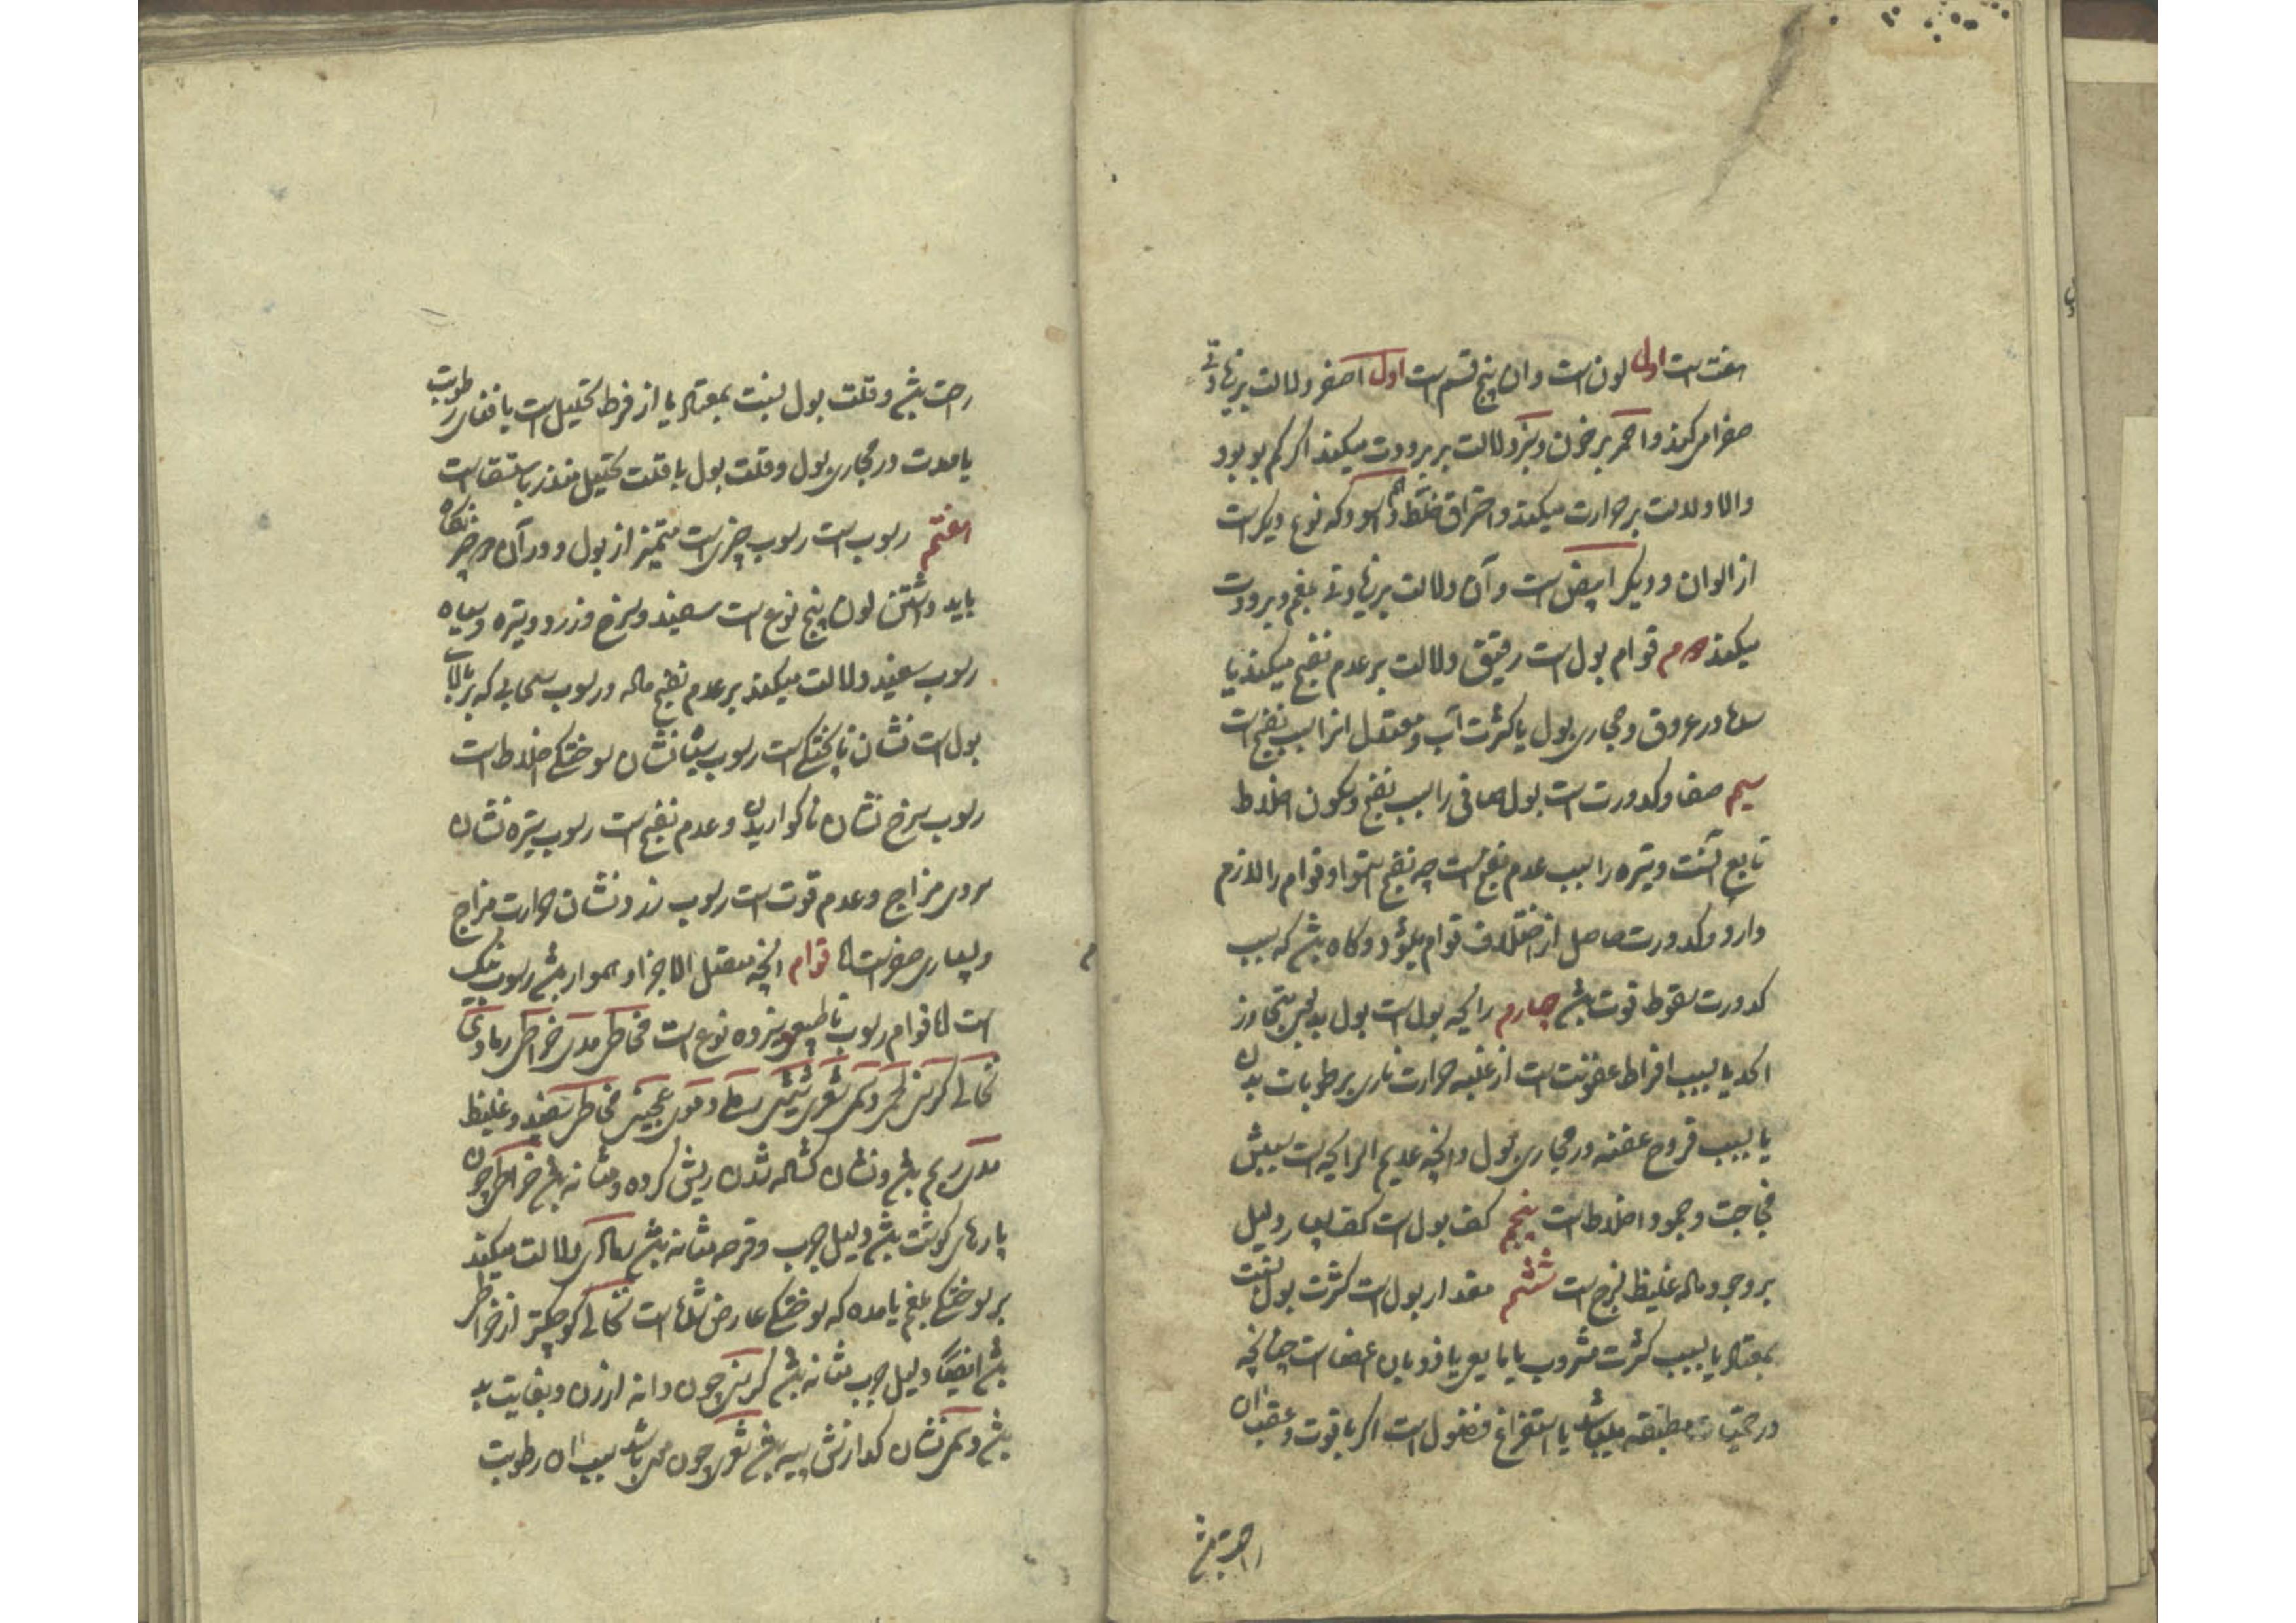 هفت است اول لون است و ان پنج قسم است اول اصفر دلالت بر زیادتی
صفرا می کند و احمر بر خون و سبز دلالت بر برودت میکند اکر کم بو بود
والا دلالت بر حرارت میکند و احتراق خلط و اسود که نوع دیکر است
از الوان و دیکر ابیض است و آن دلالت بر زیادتی بلغم و برودت
میکند دوم قوام بول است رقیق دلالت بر عدم نضج میکند یا
سدها در عروق و مجاری بول یا کثرت آب و معتدل انرا سبب نضج است
سیم صفا و کدورت است بول صافی را سبب نضج و سکون اخلاط
تابع آنست و تیره را سبب عدم نضج است چه نضج استوا و قوام را لازم
دارد و کدورت حاصل از اختلاف قوام میشود و کاه باشد که سبب
کدورت سقوط قوت باشد چهارم رایحه بول است بول بدبوی متجاوز
الحد یا بسبب افراط عفونت است از غلبه حرارت ناری بر رطوبات بدن
یا بسبب قروح عفنه در مجاری بول و انچه عدیم الرایحه است سببش
فجاجت و جمود اخلاط است پنجم کف بول است کف بسیار دلیل
بر وجود ماده غلیظ لزج است ششم مقدار بول است کثرت بول نسبت
بمعتاد یا بسبب کثرت مشروب یا ذوبان اعضا است چنانچه
در حمیات مطبقه میباشد یا استفراغ فضول است اکر با قوت و عقب ان
راحت باشد
راحت باشد و قلت بول نسبت بمعتاد یا از فرط تحلیل است یا فنای رطوبت
یا سدت در مجاری بول و قلت بول با قلت تحلیل منذر باستسقا است
هفتم رسوب است رسوب چیزی است متمیز از بول و در آن دو چیز نکاه
باید داشتن لون پنج نوع است سفید و سرخ و زرد و تیره و سیاه
رسوب سفید دلالت میکند بر عدم نضج ماده و رسوب سحابی که بر بالای
بول است نشان ناپختکی است رسوب سیاه نشان سوختکی اخلاط است
رسوب سرخ نشان ناکواریدن و عدم نضج است رسوب تیره نشان
سردی مزاج و عدم قوت است رسوب زرد نشان حرارت مزاج
و بسیاری صفر است اما قوام انچه معتدل الاجزا و هموار باشد رسوب نیک
است اما قوام رسوب نا طبیعی سیزده نوع است مخاطی مدی خراطی رمادی
نخالی کرسنی لحمی دسمی شعری علقی دموی عجینی مخاطی سفید و غلیظ
مدی ریم باشد و نشان کشاده شدن ریش کرده و مثانه باشد خراطی چون
پارهای کوشت باشد دلیل جرب و قرحه مثانه باشد رمادی دلالت میکند
بر سوختکی بلغم یا مده که سوختکی عارض شده است نخالی کوچکتر از خراطی
باشد ایضا دلیل جرب مثانه باشد کرسنی چون دانه ارزن و بغایت بد
باشد دسمی نشان کدازش پیه باشد شعری چون موی باشد سبب ان رطوبت